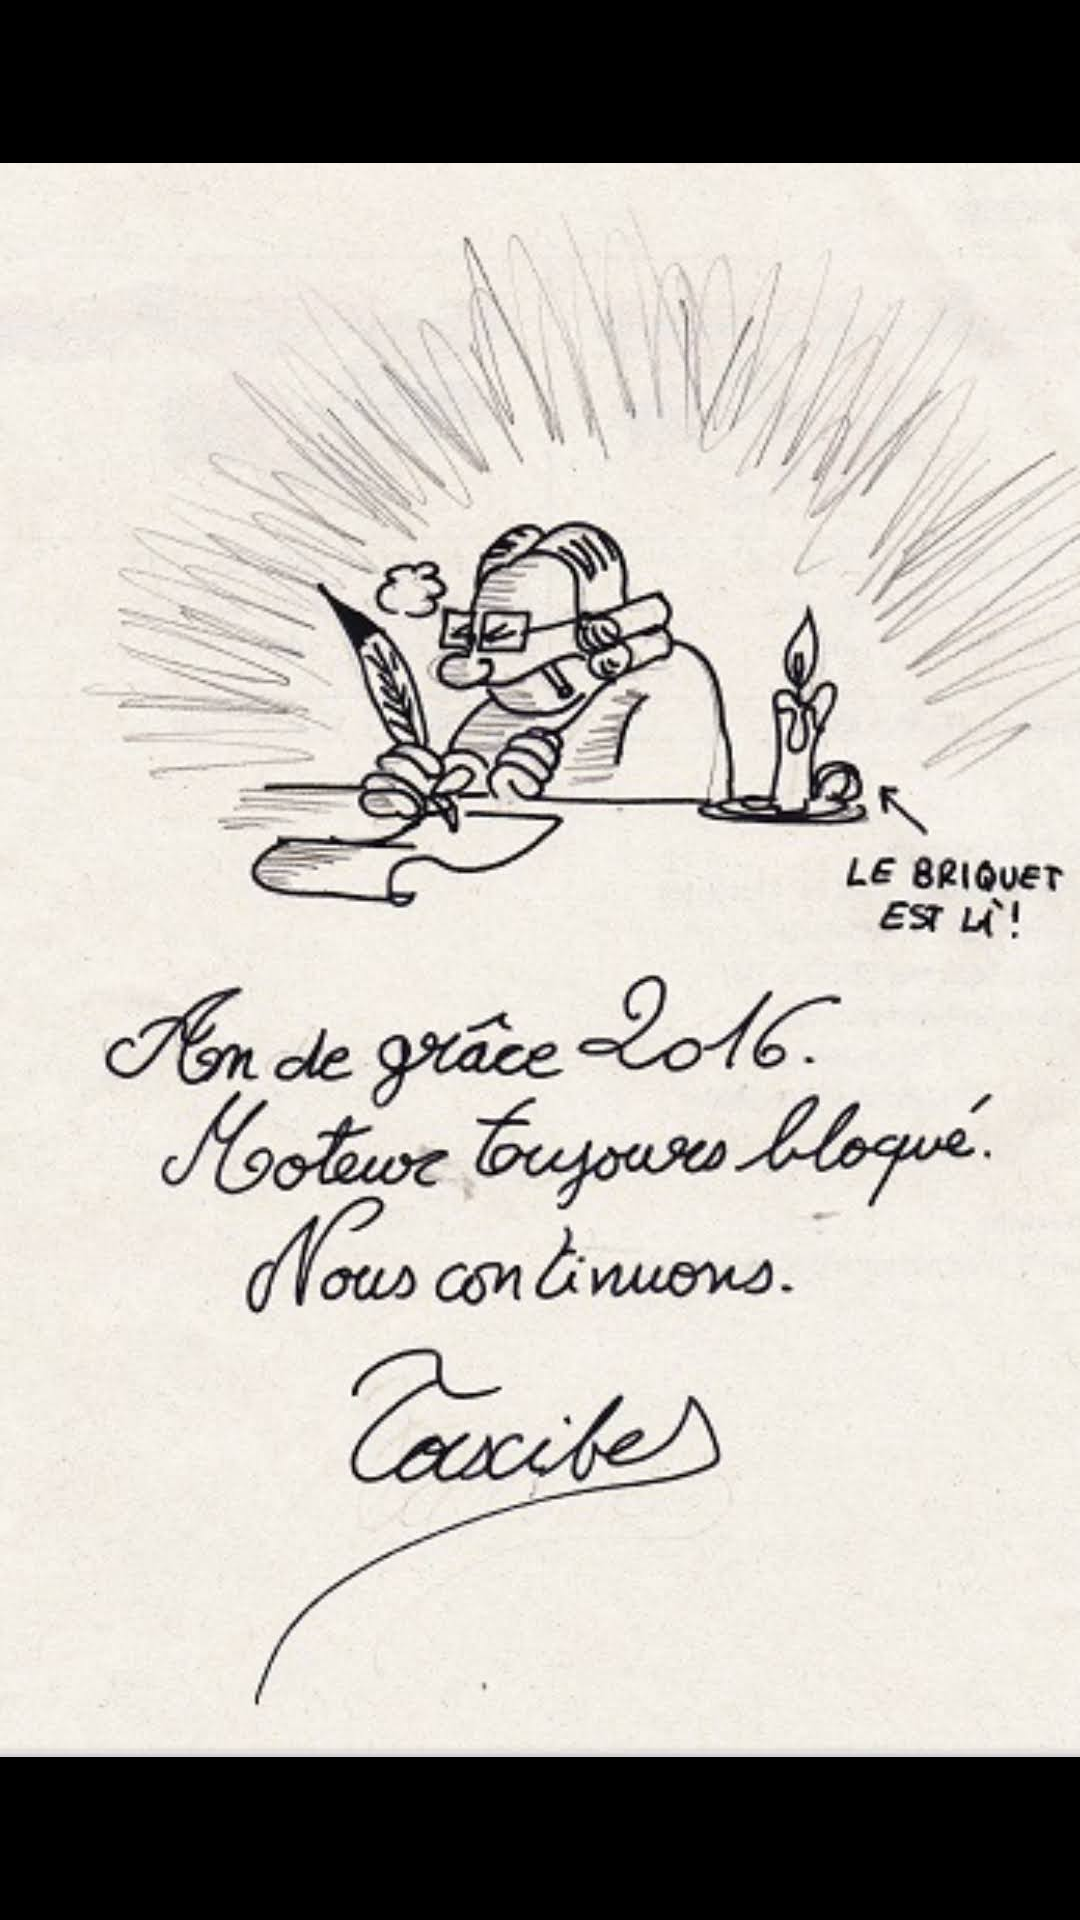 LE BRIQUET
EST LÀ !
An de grâce 2016.
Moteur toujours bloqué.
Nous continuons.
Taxcibes